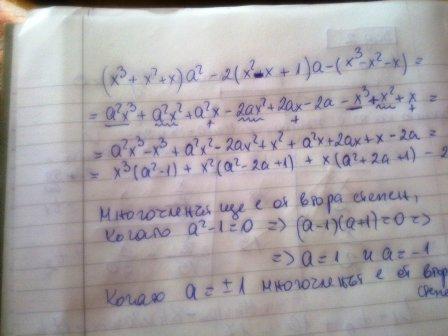 (x³ + x² + x)a² - 2(x² - x + 1)a - (x³ - x² - x) =
= a²x³ + a²x² + a²x - 2ax² + 2ax - 2a - x³ + x² + x
= a²x³ - x³ + a²x² - 2ax² + x² + a²x + 2ax + x - 2a =
= x³(a² - 1) + x²(a² - 2a + 1) + x(a² + 2a + 1) - 2
Многочленът ще е от втора степен,
когато a² - 1 = 0 => (a - 1)(a + 1) = 0 =>
=> a = 1 и a = -1
Когато a = ±1 многочленът е от втор
степе